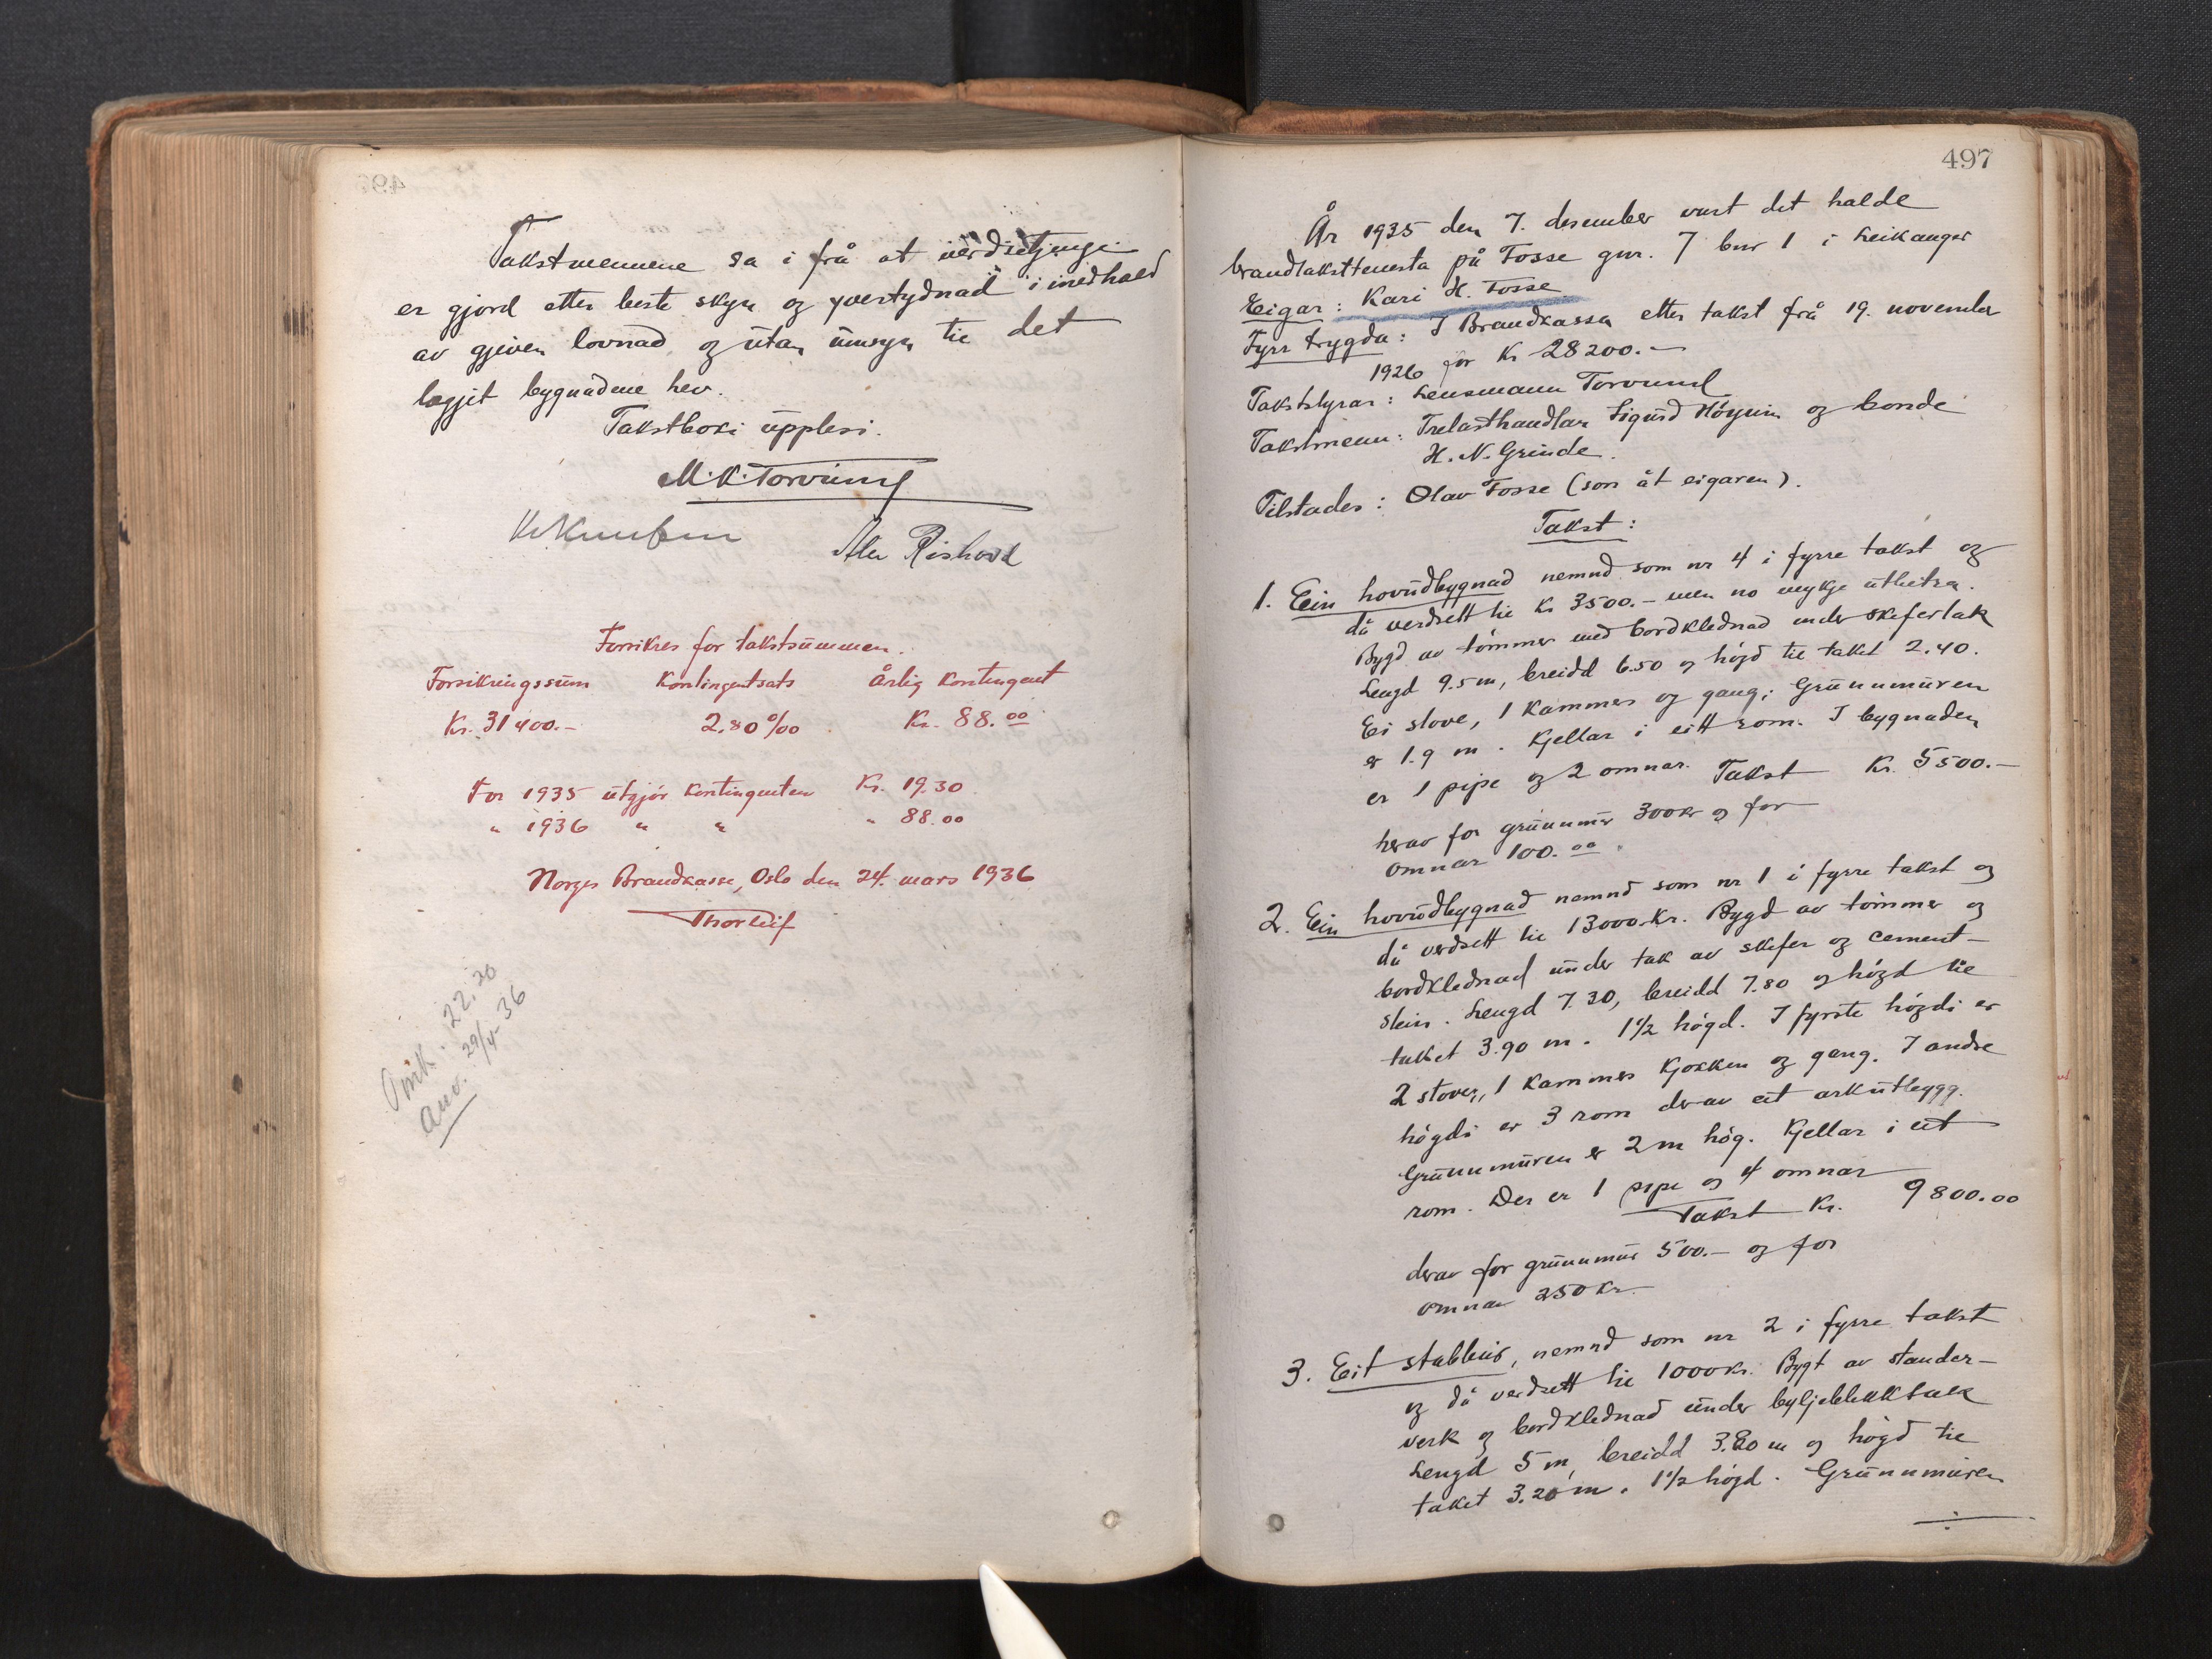 Takstmennene sa i frå at verdsetjingi
er gjord etter beste skyn og yvertydnad i medhald
av gjeven lovnad og utan umsyn til det
lægjet bygnadene hev.
Takstboki upplesi.
M. K. Torvund
Kr Knutsen
Rishovd
Forsikres for takstsummen.
Forsikringssum Kontingentsats Årlig Kontingent
Kr. 31400.- 2,80 ‰ Kr. 88.00
For 1935 utgjør Kontingenten Kr. 19.30
" 1936 " " " 88.00
Norges Brandkasse, Oslo den 24. mars 1936
Thorleif
22.20
Anv. 29/4-36
497
År 1935 den 7. desember vart det halde
brandtaksttenesta på Fosse gnr. 7 bnr 1 i Leikanger
Eigar: Kari H. Fosse
Fyrr trygda: I Brandkassa etter takst frå 19. november
1926 for Kr 28200.-
Takststyrar: Lensmann Torvund
Takstmenn: Trelasthandlar Sigurd Høyum og bonde
H. N. Grinde.
Tilstades: Olav Fosse (son åt eigaren).
Takst:
1. Ein hovudbygnad nemnd som nr 4 i fyrre takst og
då verdsett til Kr 3500.- men no mykje utbetra.
Bygd av tømmer med bordklednad under skifertak
Lengd 9.5 m, breidd 6.50 og høgd til taket 2.40.
Ei stove, 1 kammer og gang; Grunnmuren
er 1.9 m. Kjellar i eitt rom. I bygnaden
er 1 pipe og 2 omnar. Takst Kr. 5500.-
herav for grunnmur 300 kr og for
omnar 100.00.
2. Ein hovudbygnad nemnd som nr 1 i fyrre takst og
då verdsett til 13000 Kr. Bygd av tømmer og
bordklednad under tak av skifer og cement-
stein. Lengd 7.30, breidd 7.80 og høgd til
taket 3.90 m. 1½ høgd. I fyrste høgdi er
2 stover, 1 kammer kjøkken og gang. I andre
høgdi er 3 rom derav eit arkutbygg.
Grunnmuren er 2 m høg. Kjellar i eit
rom. Der er 1 pipe og 4 omnar
Takst Kr. 9800.00
derav for grunnmur 500.- og for
omnar 250 Kr.
3. Eit stabbur, nemnd som nr 2 i fyrre takst
og då verdsett til 1000 Kr. Bygt av stander-
verk og bordklednad under bylgjeblikktak
Lengd 5 m, breidd 3.80 m og høgd til
taket 3.20 m. 1½ høgd. Grunnmuren